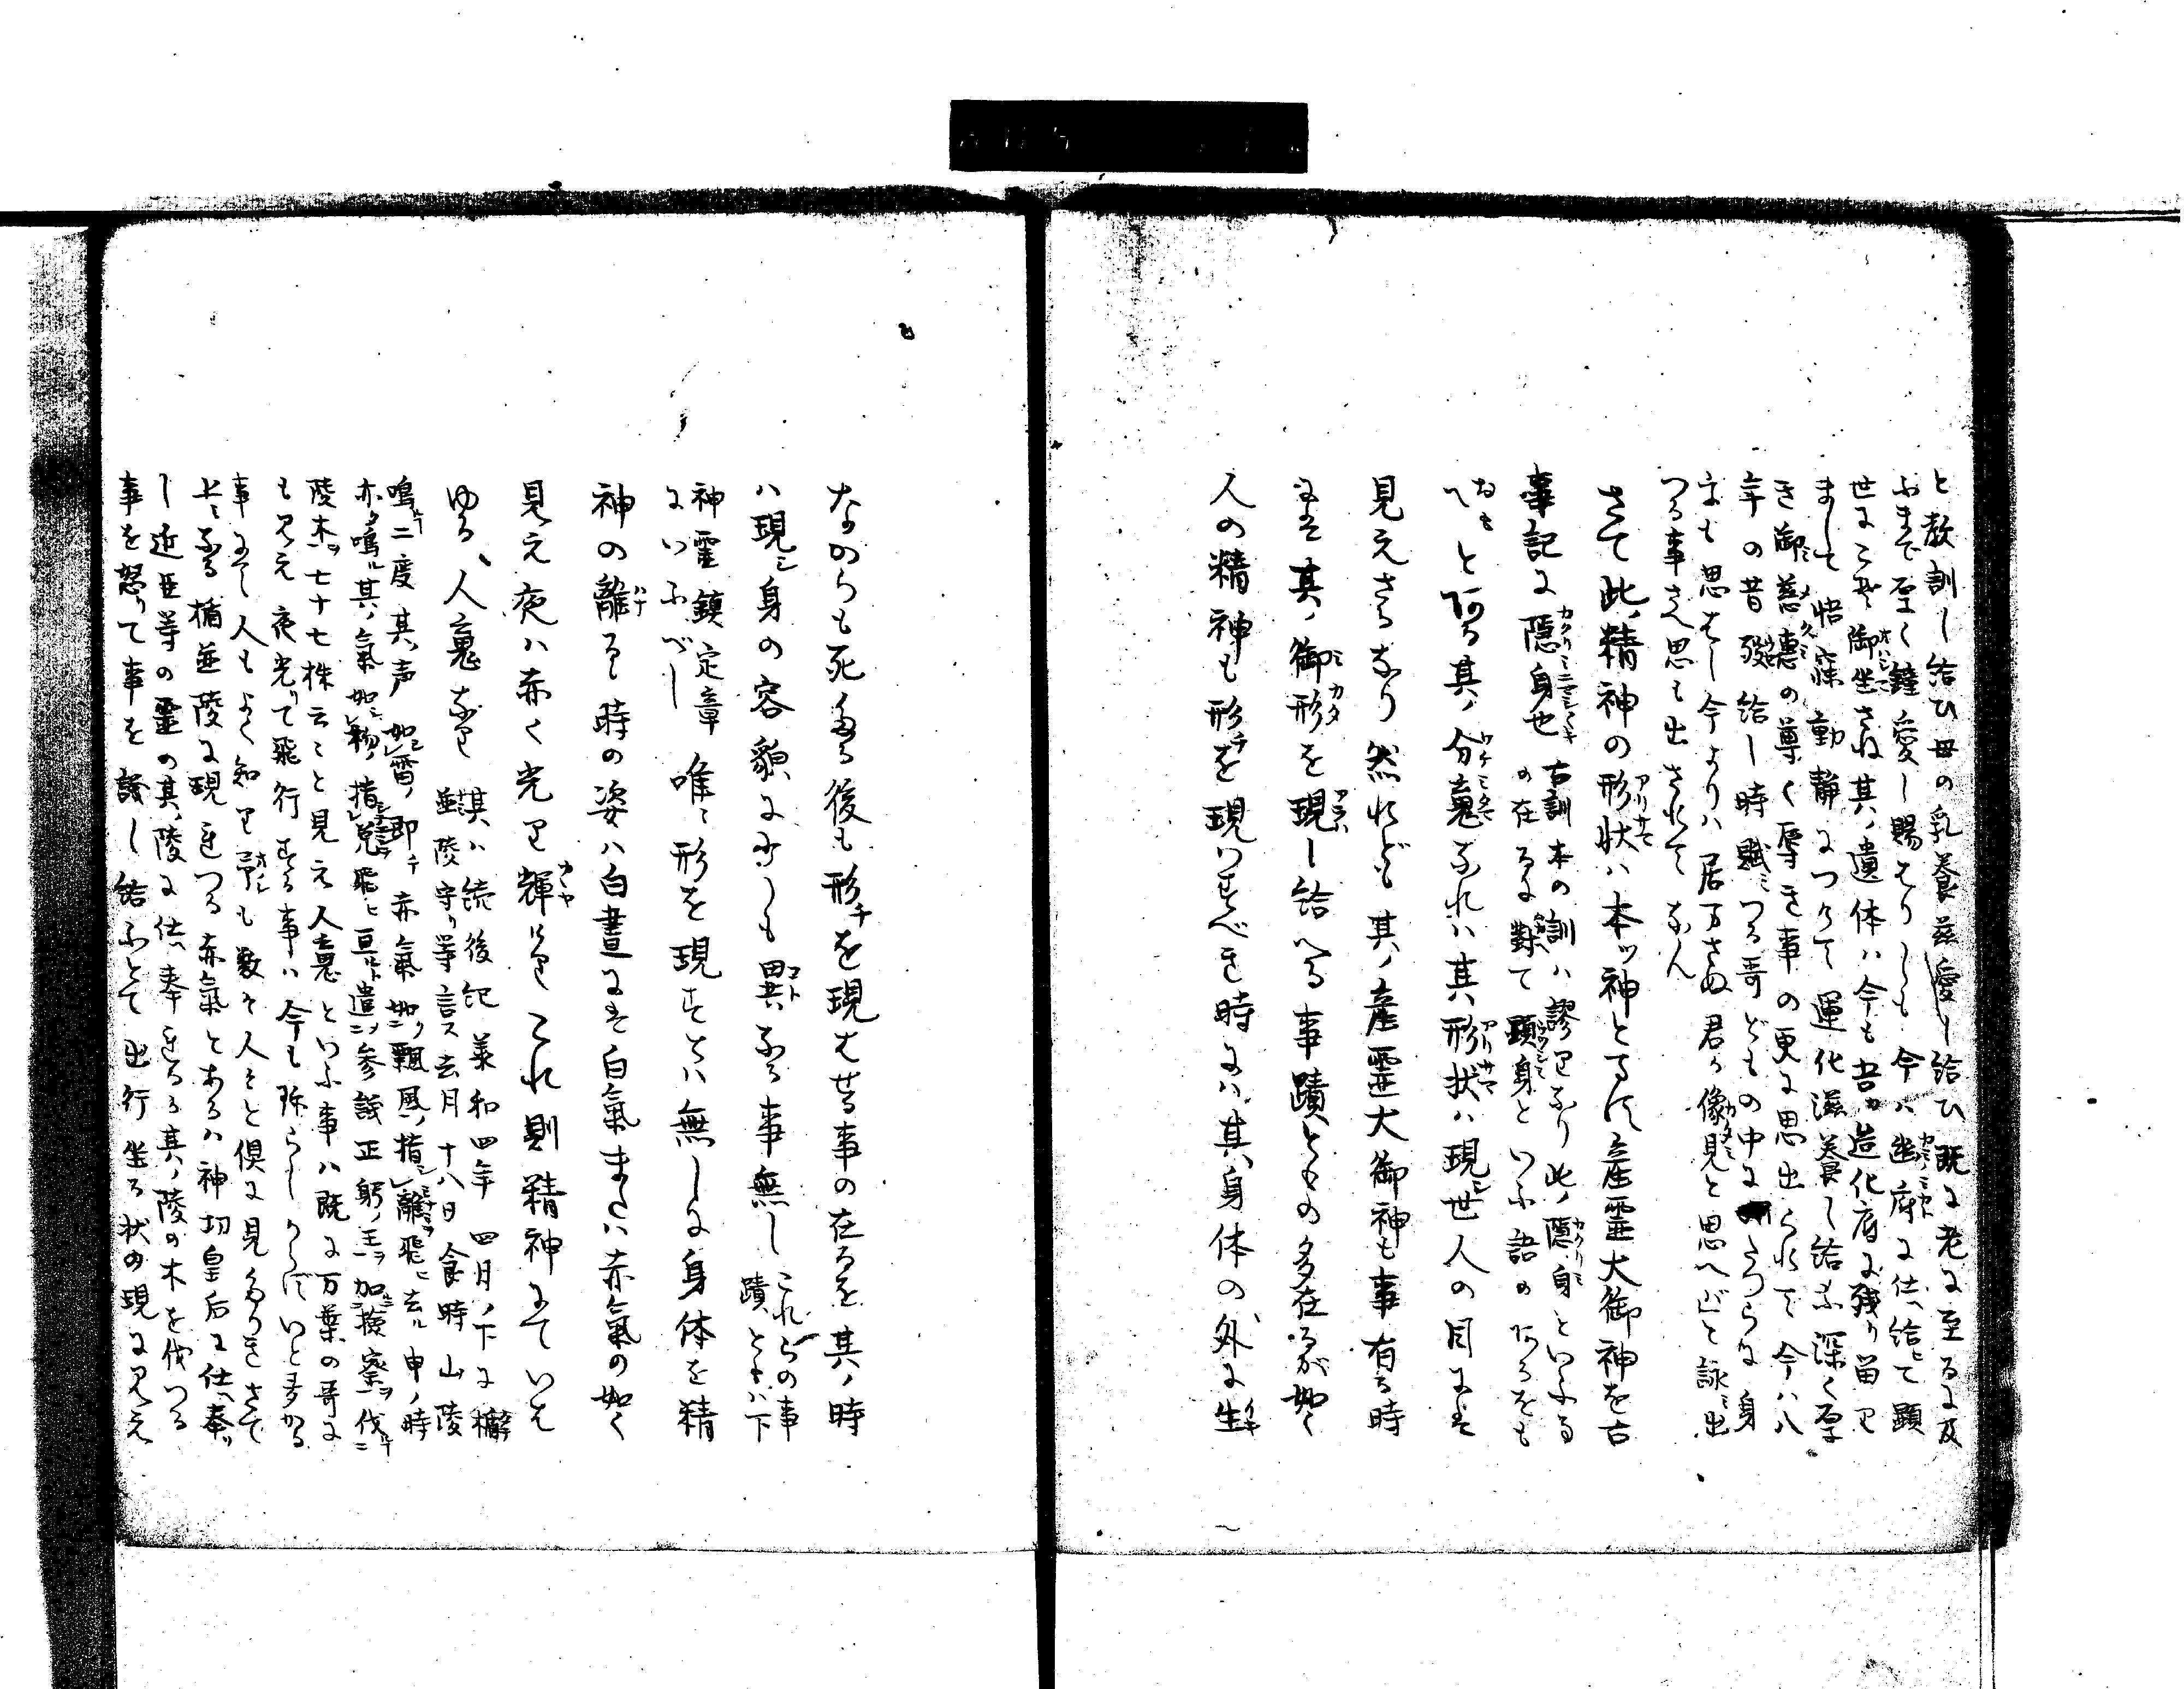 と教訓し給ひ母の乳養慈愛し給ひ既に老に至るに及
ふまで厚く鐘愛し賜へりしも今ハ幽府に仕ヘ給ヒて顕
世にこそ御坐さね其ノ遺体ハ今も吾カ造化府に残り留り
まして悟寐動静につけて運化滋養し給ふ深く厚
き御慈悳の尊く辱き事の更に思出られて今ハ八
年の昔 給し時賦ミつる哥どもの中に さつらな身
にも思はし今よりハ居万さぬ君カ像見と思へバと詠ミ出
つる事さへ思も出されてなん
さて此ノ精神の形状ハ本ツ神とます産霊大御神を古
事記に隠身也 古訓本の訓ハ謬りなり此ノ隠身といへる
の在るに対て顕身といふ語のあるをも
おもへ とある其ノ分霊なれハ其ノ形状ハ現シ世人の目にそ
見えさるなり然れども其ノ産霊大御神も事有る時
にそ其ノ御形を現し給へる事蹟どもの多在るが如く
人の精神も形チを現ハすべき時にハ其ノ身体の外に生
なからも死たる後も形チを現せる事の在るを其ノ時
ハ現シ身の容貌に少しも異なる事無し これらの事蹟ともハ下
神霊鎮定章にいふべし 唯ニ形を現すとハ無しに身体を精
神の離るゝ時の姿ハ白昼にそ白氣または赤氣の如く
見え夜ハ赤く光り輝けりこれ則精神にていは
ゆる人魂なり 其ハ続後記兼和四年四月ノ下に
並陵守リ等言ス去月十八日食時山陵
鳴ルヿ二度其ノ声如シ雷ノ即チ赤氣如ク飄風ノ指シ離ヲ飛ヒ去ル申ノ時
亦タ鳴ル其ノ氣如シ粉ノ指シ兌ヲ飛ヒ亘ル遣ソ参議正躬ノ王ヲ加ニ検察ヲ伐ルヿ
陵木ヲ七十七株云々と見え人魂といふ事ハ既に万葉の哥に
も見え夜光りて飛行する事ハ今も珎らしからずいと多かる
事にて人もよく知り予も数々人々と倶に見たりきさて
上ニなる楯並陵に現はれつる赤氣とあるハ神切皇后に仕ヘ奉ツ
し近臣等の霊の其ノ陵に仕ヘ奉れるか其ノ陵の木を伐つる
事を怒りて事を議し給ふとて出行坐る状の現に見え